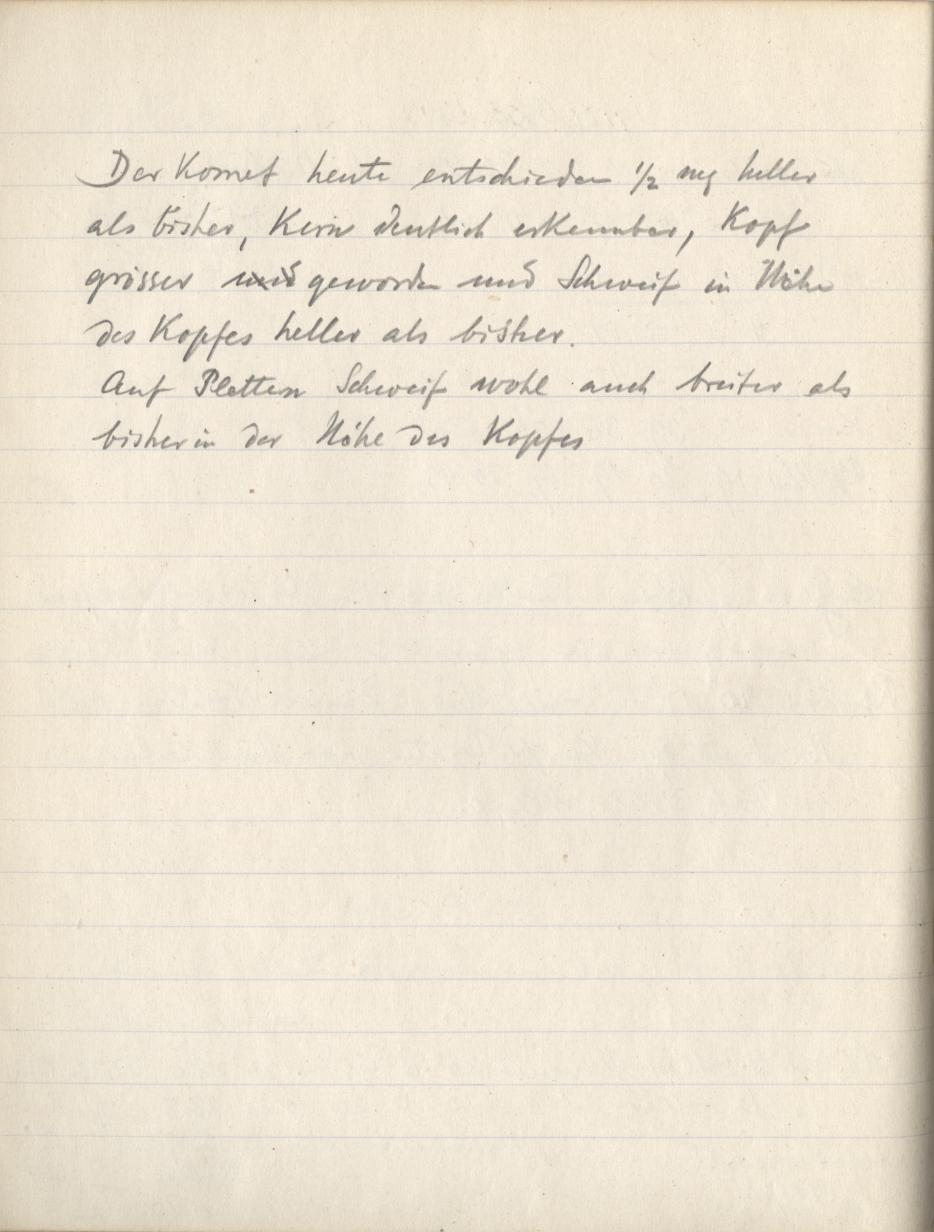 Der Komet heute entschieden 1/2 mg heller
als bisher, Kern deutlich erkennbar, Kopf
grösser und geworden und Schweif in Nähe
des Kopfes heller als bisher.
Auf Platten Schweif wohl auch breiter als
bisher in der Nähe des Kopfes